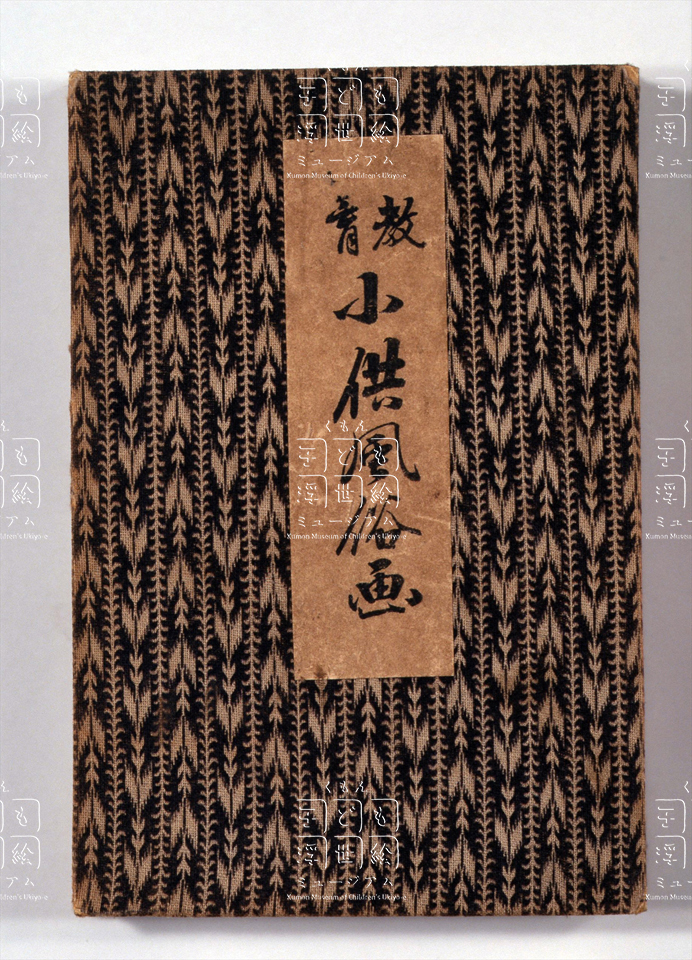 教育
小供風俗画
くもん
子ども
浮世絵
ミュージアム
Kumon Museum of Children's Ukiyo-e